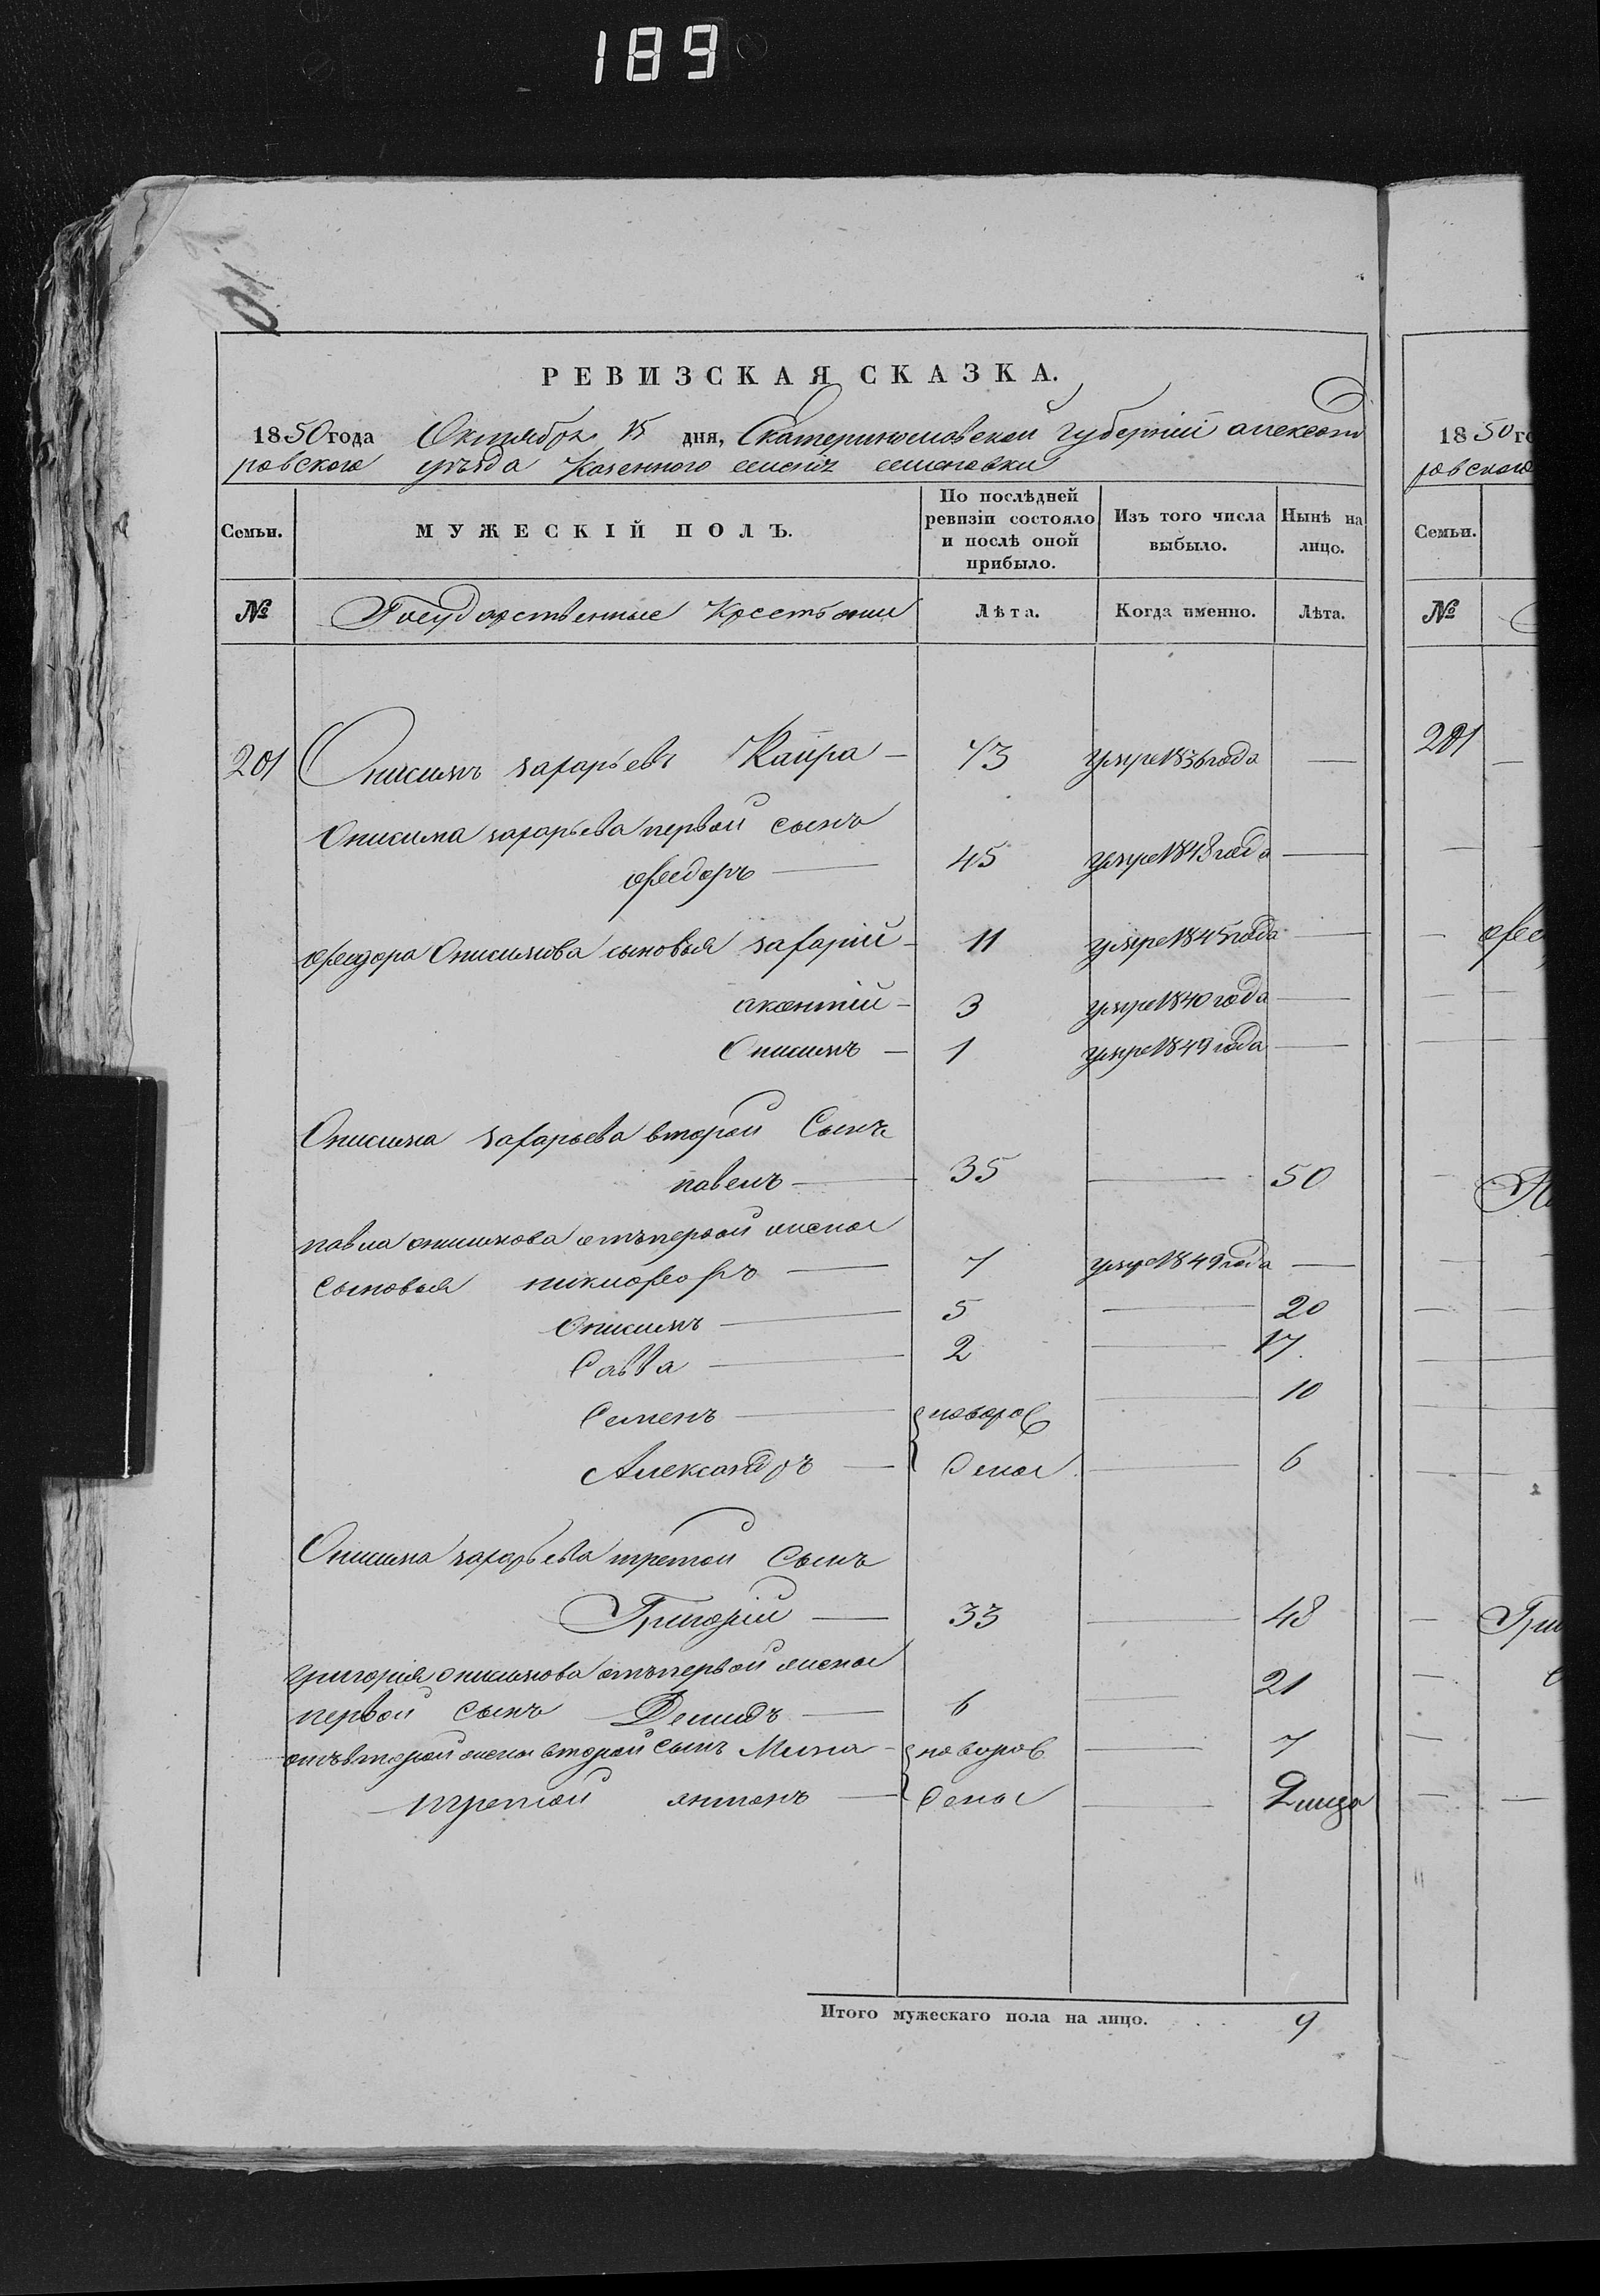 189
РЕВИЗСКАЯ СКАЗКА.
1850 года Октября 15 дня, Екатеринославской губерніи александ
ровского уѣзда Казенного селенія семеновки
Семьи. МУЖЕСКІЙ ПОЛЪ. По послѣдней ревизіи состояло и послѣ оной прибыло. Изъ того числа выбыло. Нынѣ на лицо.
№ Государственные Крестьяни Лѣта. Когда именно. Лѣта.
201 Онисимъ захарьевъ Каира — 73 умре 1836 года —
Онисима захарьева первой сынъ
ѳедоръ — 45 умре 1848 года —
ѳеодора Онисимова сыновья захарій — 11 умре 1845 года —
акентій — 3 умре 1840 года —
Онисимъ — 1 умре 1849 года —
Онисима захарьева второй Сынъ
павелъ — 35 — 50
павла онисимова отъ первой жены
сыновья никифоръ — 7 умре 1849 года —
Онисимъ — 5 — 20
Савва — 2 — 17.
Семенъ — новорож — 10
Александръ — дены — 6
Онисима захарьева третой Сынъ
Григорій — 33 — 48
григорія онисимова отъ первой жены
первой сынъ Демидъ — 6 — 21
отъ второй жены второй сынъ Мина — новорож — 7
третой антонъ — дены — 2 мца
Итого мужескаго пола на лицо. 9
1850 го
ровского
Семьи.
№
201
Гри